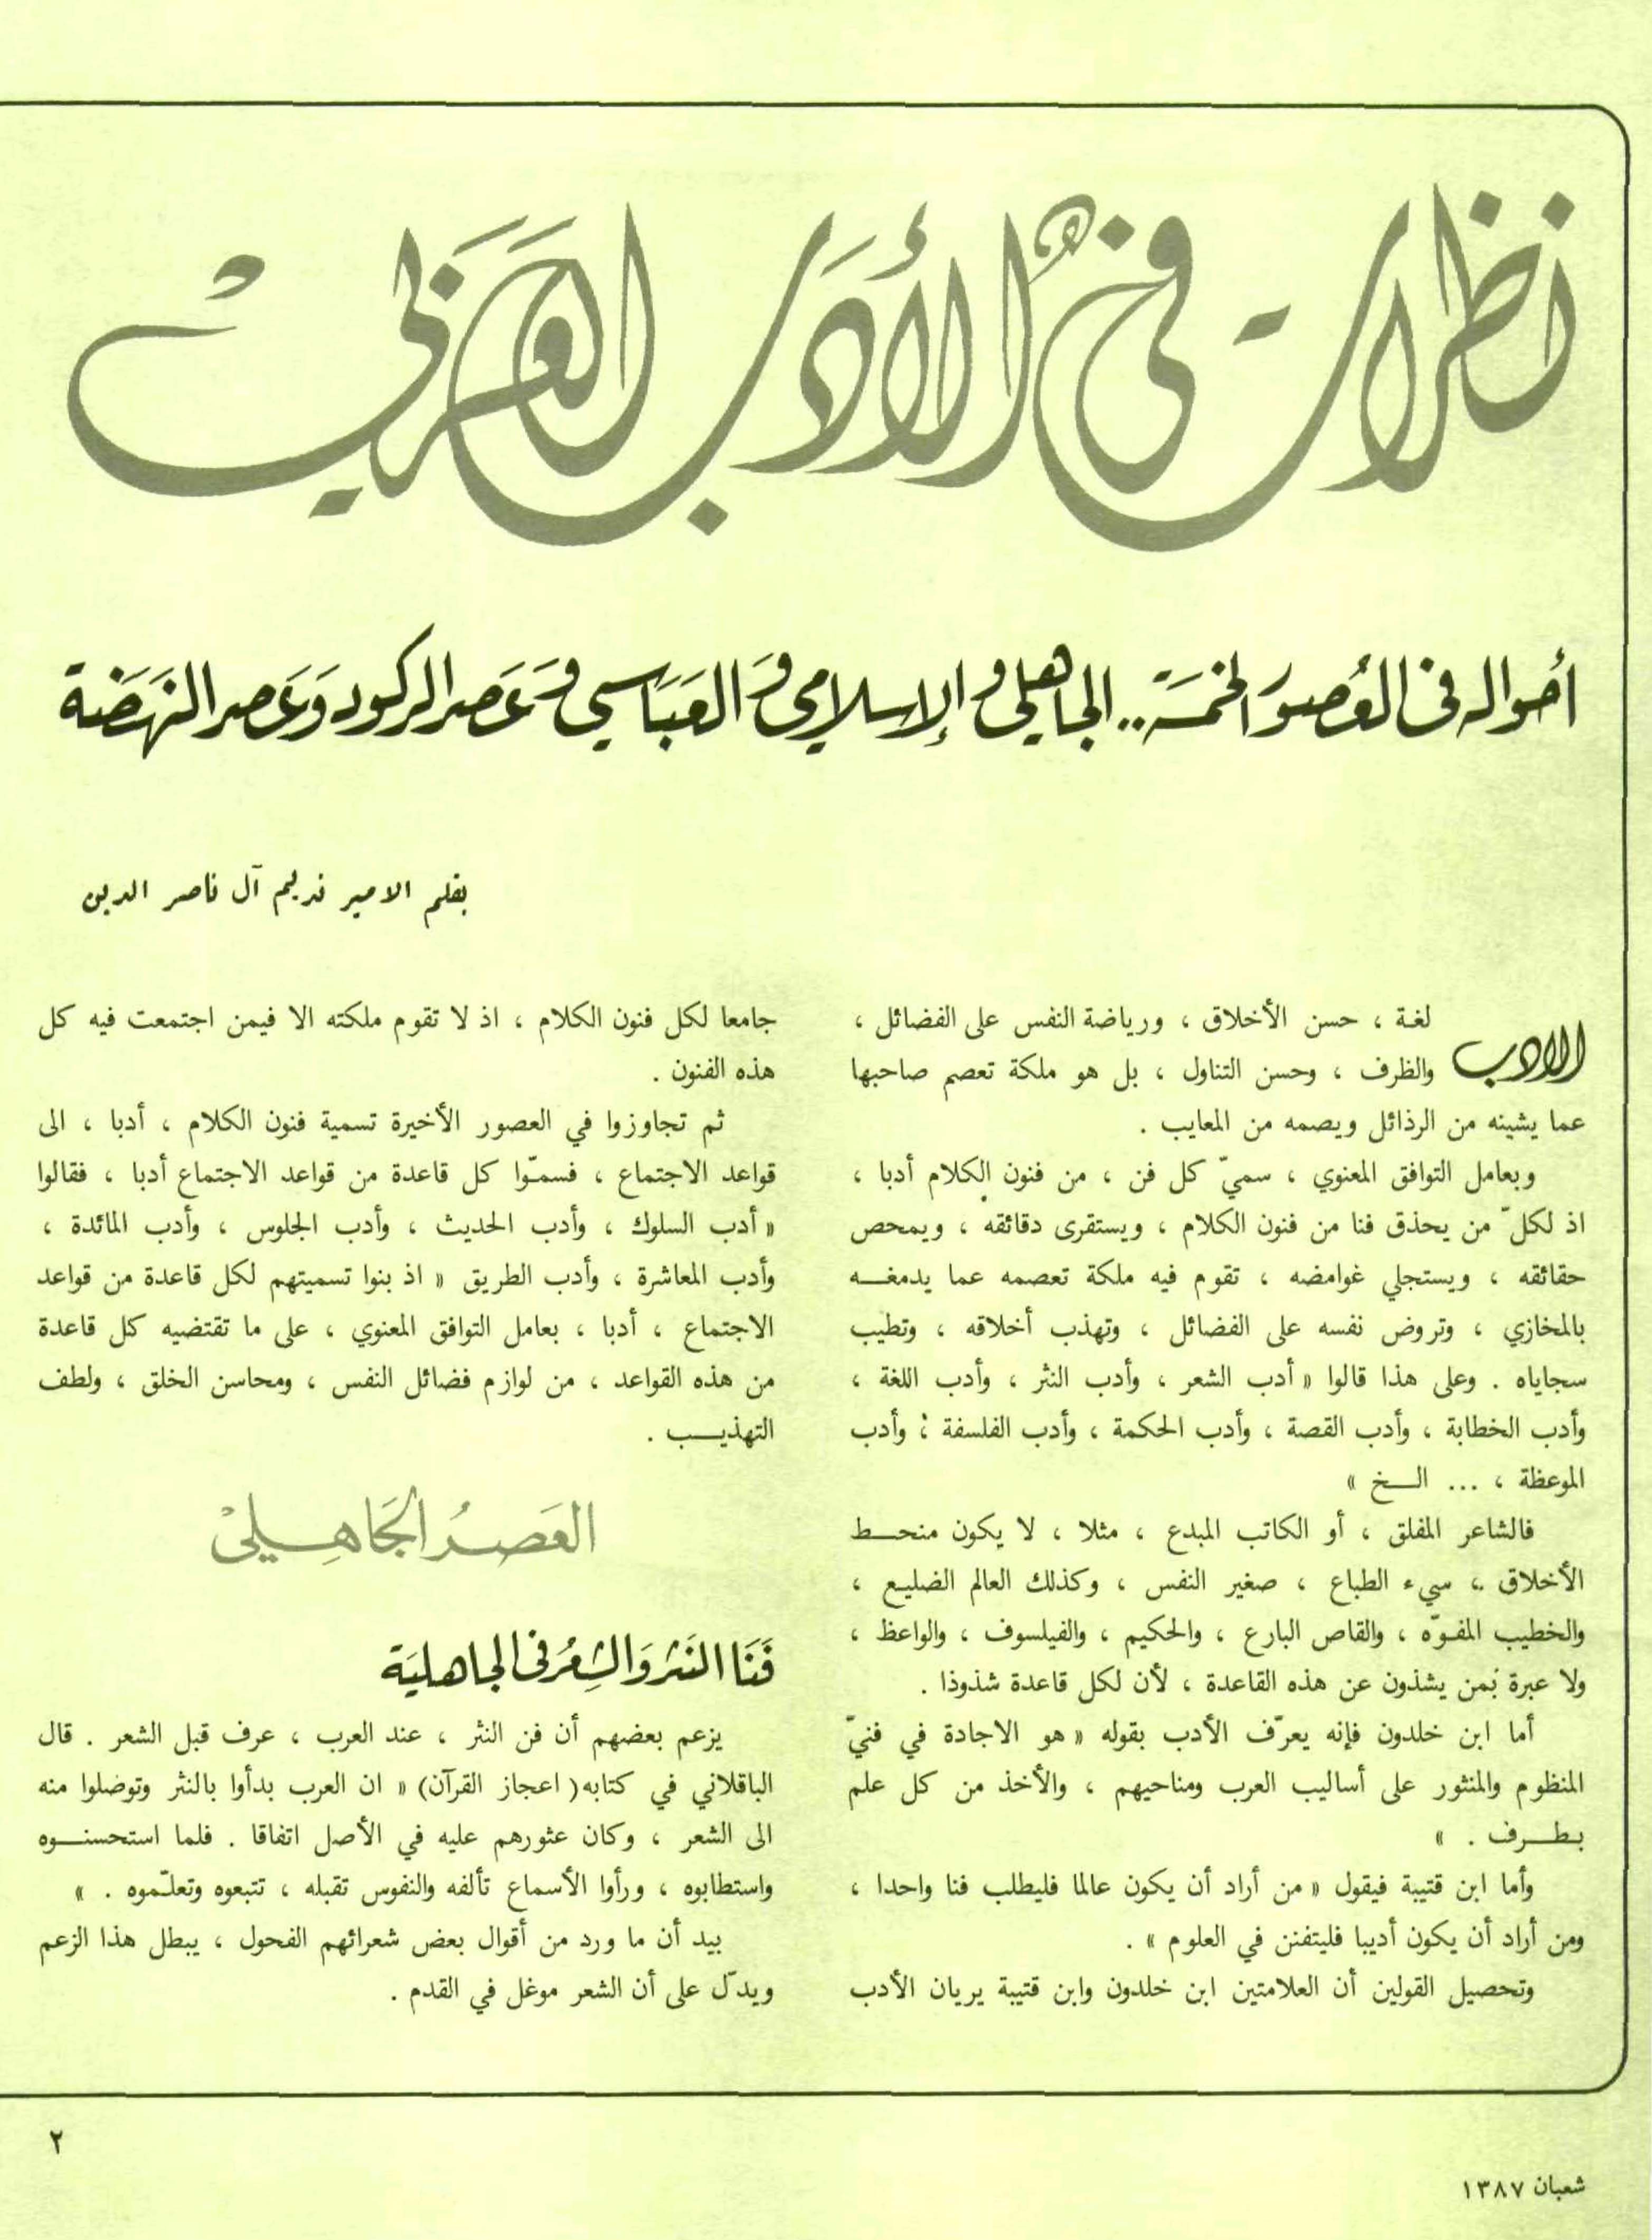 نظرات في الأدب العربي
أحواله في العُصور الخمسَة .. الجاهلي والإسلامي والعَبَاسي وعَصر الركود وَعَصر النَهضَة
بقلم الامير نديم آل ناصر الدين
الادب لغة ، حسن الأخلاق ، ورياضة النفس على الفضائل ،
والظرف ، وحسن التناول ، بل هو ملكة تعصم صاحبها
عما يشينه من الرذائل ويصمه من المعايب .
وبعامل التوافق المعنوي ، سميّ كل فن ، من فنون الكلام أدبا ،
اذ لكلّ من يحذق فنا من فنون الكلام ، ويستقرى دقائقه ، ويمحص
حقائقه ، ويستجلي غوامضه ، تقوم فيه ملكة تعصمه عما يدمغـــه
بالمخازي ، وتروض نفسه على الفضائل ، وتهذب أخلاقه ، وتطيب
سجاياه . وعلى هذا قالوا « أدب الشعر ، وأدب النثر ، وأدب اللغة ،
وأدب الخطابة ، وأدب القصة ، وأدب الحكمة ، وأدب الفلسفة ، وأدب
الموعظة ، ... الــخ »
فالشاعر المفلق ، أو الكاتب المبدع ، مثلا ، لا يكون منحــط
الأخلاق ، سيء الطباع ، صغير النفس ، وكذلك العالم الضليـع ،
والخطيب المفـوّه ، والقاص البارع ، والحكيم ، والفيلسوف ، والواعظ ،
ولا عبرة بمن يشذون عن هذه القاعدة ، لأن لكل قاعدة شذوذا .
أما ابن خلدون فإنه يعرّف الأدب بقوله « هو الاجادة في فنيّ
المنظوم والمنثور على أساليب العرب ومناحيهم ، والأخذ من كل علم
بـطــرف . »
وأما ابن قتيبة فيقول « من أراد أن يكون عالما فليطلب فنا واحدا ،
ومن أراد أن يكون أديبا فليتفنن في العلوم » .
وتحصيل القولين أن العلامتين ابن خلدون وابن قتيبة يريان الأدب
جامعا لكل فنون الكلام ، اذ لا تقوم ملكته الا فيمن اجتمعت فيه كل
هذه الفنون .
ثم تجاوزوا في العصور الأخيرة تسمية فنون الكلام ، أدبا ، الى
قواعد الاجتماع ، فسمـّوا كل قاعدة من قواعد الاجتماع أدبا ، فقالوا
« أدب السلوك ، وأدب الحديث ، وأدب الجلوس ، وأدب المائدة ،
وأدب المعاشرة ، وأدب الطريق « اذ بنوا تسميتهم لكل قاعدة من قواعد
الاجتماع ، أدبا ، بعامل التوافق المعنوي ، على ما تقتضيه كل قاعدة
من هذه القواعد ، من لوازم فضائل النفس ، ومحاسن الخلق ، ولطف
التهذيــب .
العَصـرُ الجَاهِـيليْ
فَنَا النَثر وَالشِعرُ في الجاهليَة
يزعم بعضهم أن فن النثر ، عند العرب ، عرف قبل الشعر . قال
الباقلاني في كتابه ( اعجاز القرآن) « ان العرب بدأوا بالنثر وتوصلوا منه
الى الشعر ، وكان عثورهم عليه في الأصل اتفاقا . فلما استحسنــوه
واستطابوه ، ورأوا الأسماع تألفه والنفوس تقبله ، تتبعوه وتعلـّموه . »
بيد أن ما ورد من أقوال بعض شعرائهم الفحول ، يبطل هذا الزعم
ويدلّ على أن الشعر موغل في القدم .
٢
شعبان ١٣٨٧